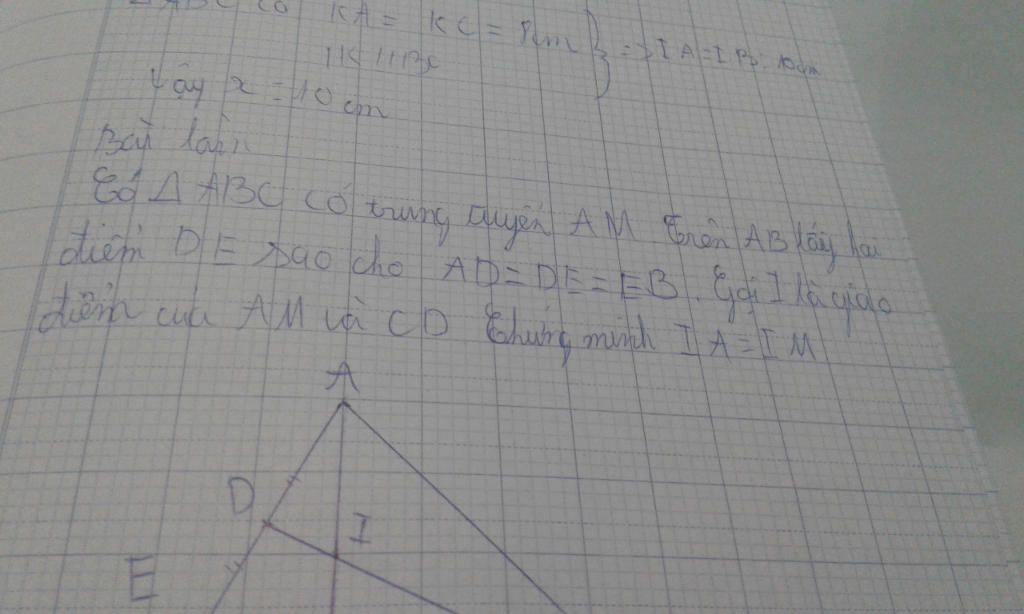 Δ ABC có KA = KC = 8cm } => IA = IB = 10cm
IK // BC
Vậy x = 10 cm
Bài làm
Có Δ ABC có trung tuyến AM Trên AB lấy hai
điểm D E sao cho AD = DE = EB. Gọi I là giao
điểm của AM và CD Chứng minh IA = IM
A
D
I
E